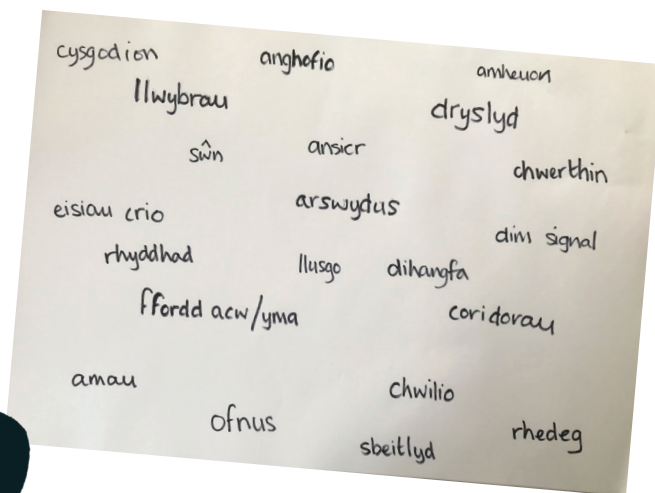 cysgodion
anghofio
amheuon
llwybrau
dryslyd
sŵn
ansicr
chwerthin
eisiau crio
arswydus
dim signal
rhyddhad
llusgo
dihangfa
ffordd acw/yma
coridorau
amau
chwilio
ofnus
sbeitlyd
rhedeg